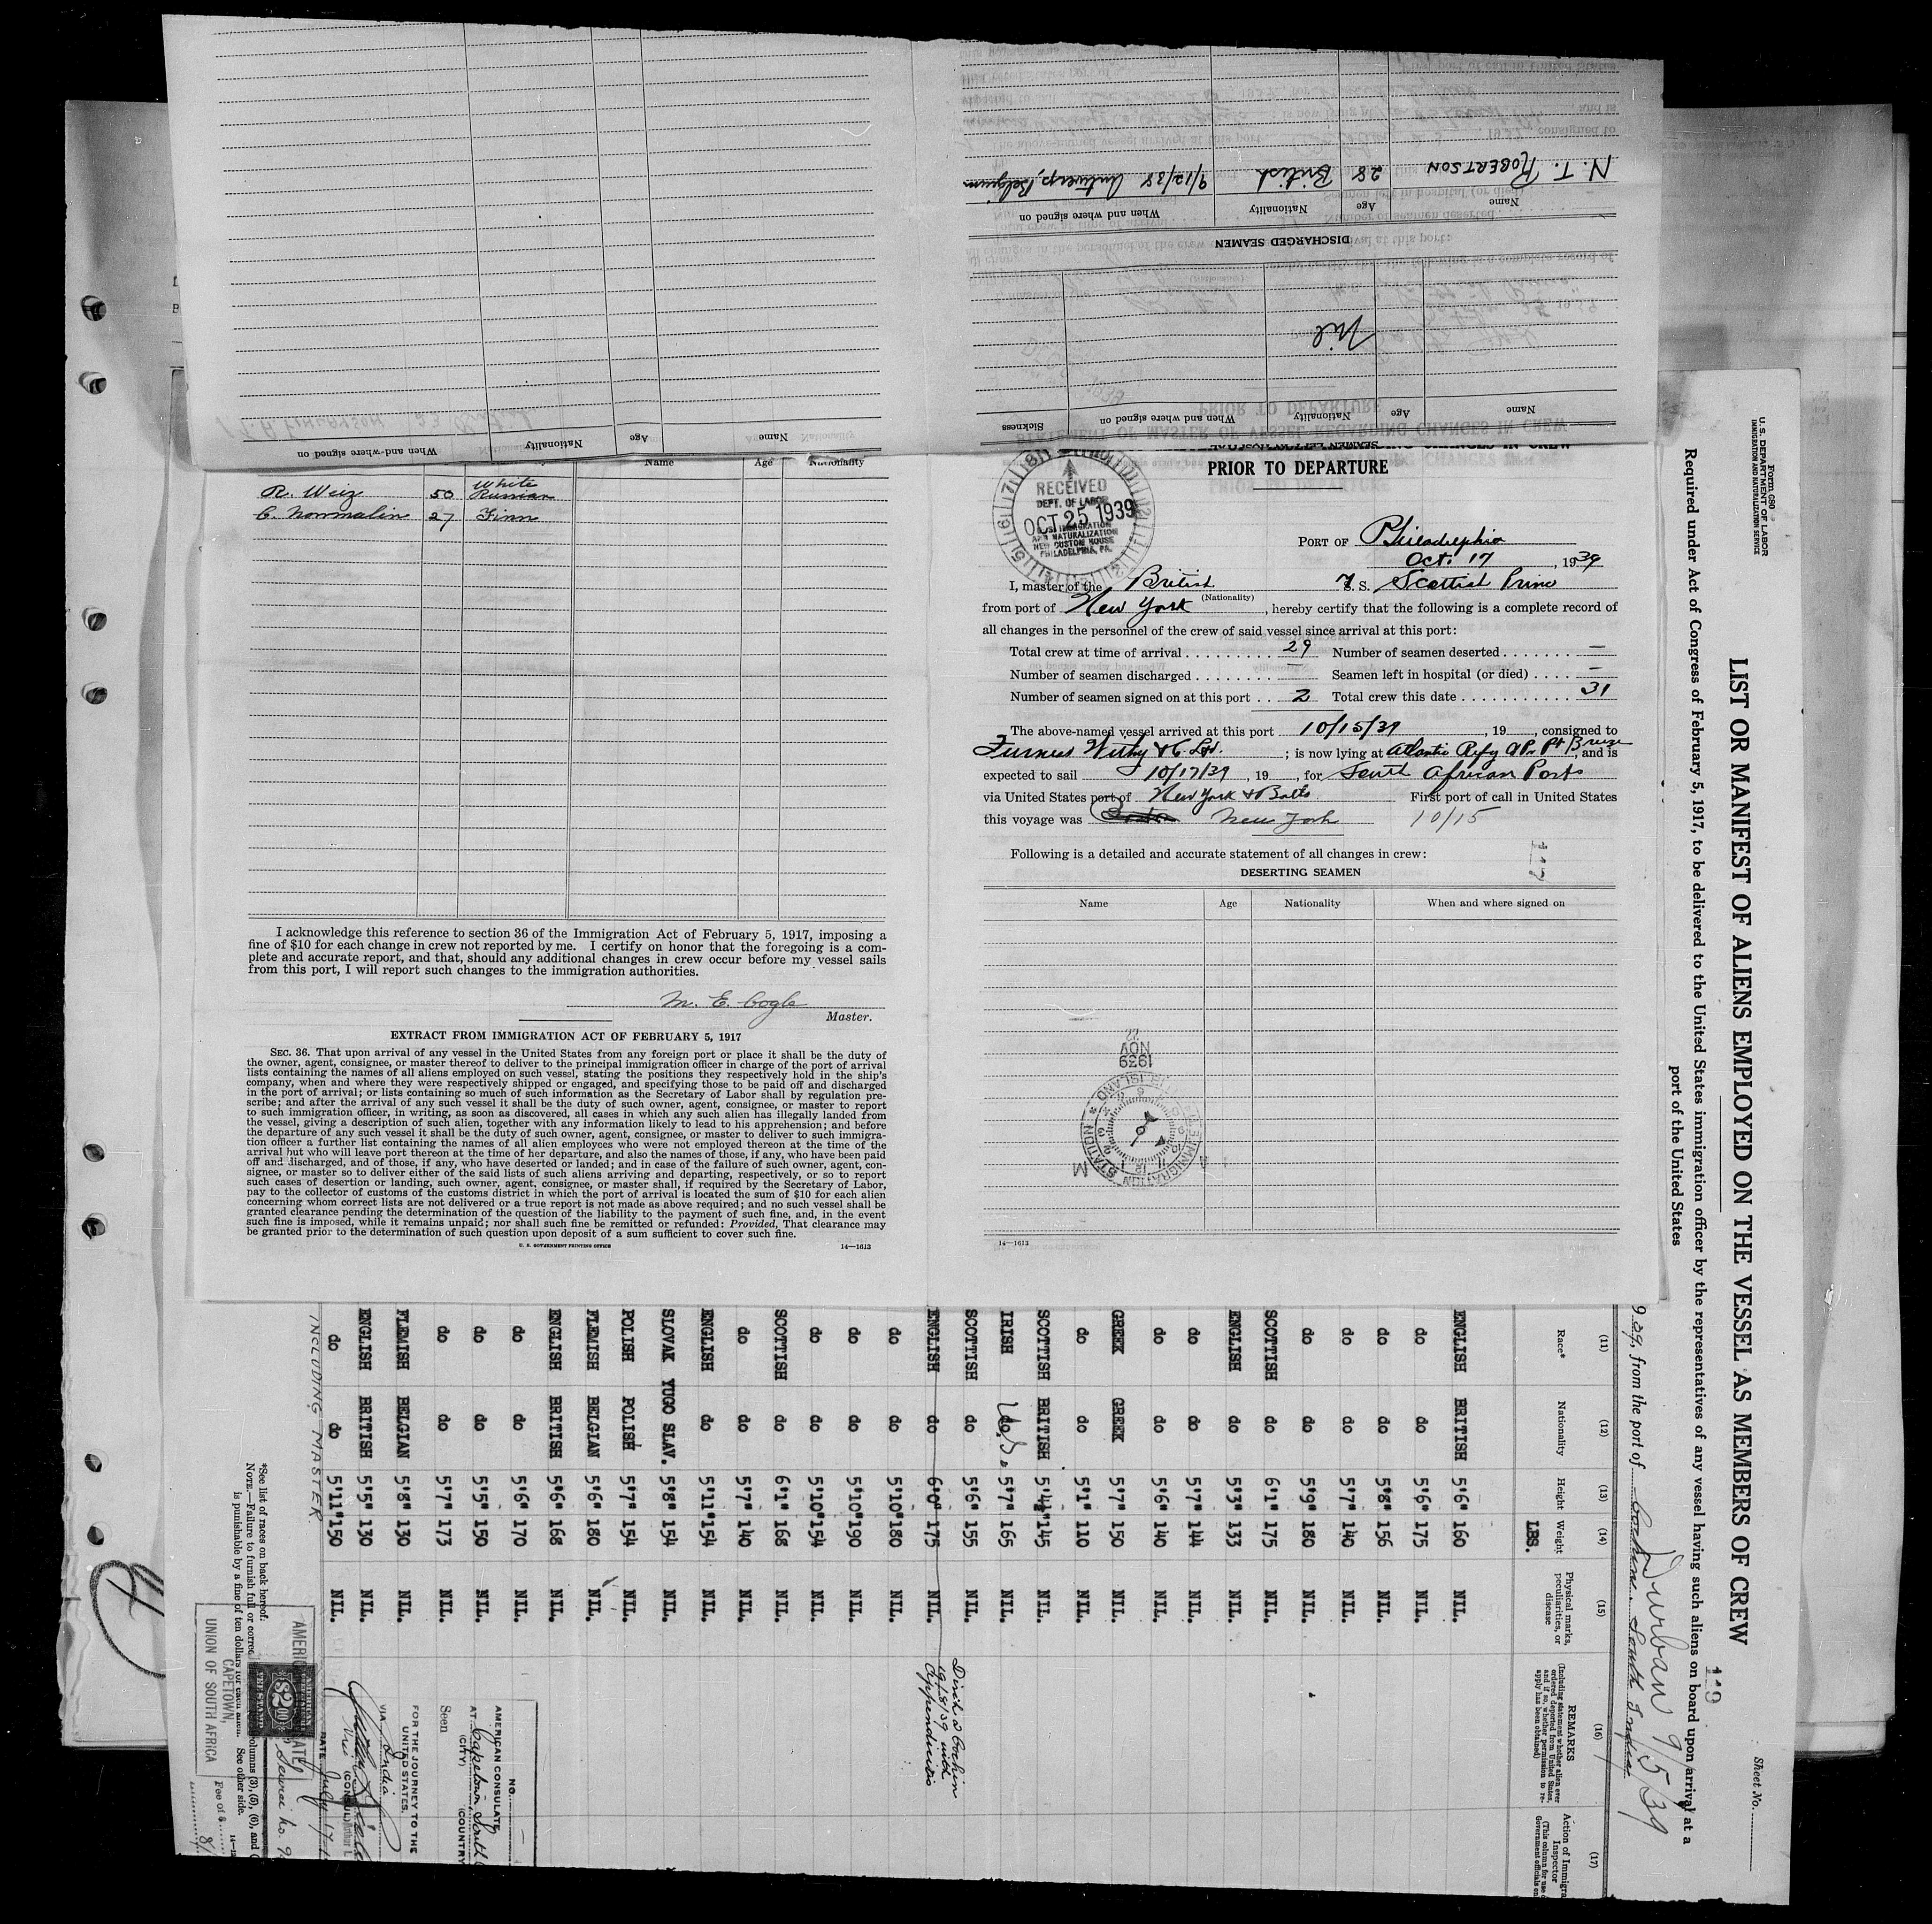 N. T. ROBERTSON 28 British 9/12/38 Antwerp, Belgium
Name Age Nationality When and where signed on
DISCHARGED SEAMEN
Nil
Name Age Nationality When and where signed on Sickness
Name Age Nationality When and where signed on
Name Age Nationality
R. Weiz 50 White Russian
27 Finn
I acknowledge this reference to section 36 of the Immigration Act of February 5, 1917, imposing a
fine of $10 for each change in crew not reported by me. I certify on honor that the foregoing is a com-
plete and accurate report, and that, should any additional changes in crew occur before my vessel sails
from this port, I will report such changes to the immigration authorities.
M. E. Cogle
Master.
EXTRACT FROM IMMIGRATION ACT OF FEBRUARY 5, 1917
SEC. 36. That upon arrival of any vessel in the United States from any foreign port or place it shall be the duty of
the owner, agent, consignee, or master thereof to deliver to the principal immigration officer in charge of the port of arrival
lists containing the names of all aliens employed on such vessel, stating the positions they respectively hold in the ship's
company, when and where they were respectively shipped or engaged, and specifying those to be paid off and discharged
in the port of arrival; or lists containing so much of such information as the Secretary of Labor shall by regulation pre-
scribe; and after the arrival of any such vessel it shall be the duty of such owner, agent, consignee, or master to report
to such immigration officer, in writing, as soon as discovered, all cases in which any such alien has illegally landed from
the vessel, giving a description of such alien, together with any information likely to lead to his apprehension; and before
the departure of any such vessel it shall be the duty of such owner, agent, consignee, or master to deliver to such immigra-
tion officer a further list containing the names of all alien employees who were not employed thereon at the time of the
arrival but who will leave port thereon at the time of her departure, and also the names of those, if any, who have been paid
off and discharged, and of those, if any, who have deserted or landed; and in case of the failure of such owner, agent, con-
signee, or master so to deliver either of the said lists of such aliens arriving and departing, respectively, or so to report
such cases of desertion or landing, such owner, agent, consignee, or master shall, if required by the Secretary of Labor,
pay to the collector of customs of the customs district in which the port of arrival is located the sum of $10 for each alien
concerning whom correct lists are not delivered or a true report is not made as above required; and no such vessel shall be
granted clearance pending the determination of the question of the liability to the payment of such fine, and, in the event
such fine is imposed, while it remains unpaid; nor shall such fine be remitted or refunded: Provided, That clearance may
be granted prior to the determination of such question upon deposit of a sum sufficient to cover such fine.
U. S. GOVERNMENT PRINTING OFFICE 14—1613
PRIOR TO DEPARTURE
RECEIVED
DEPT. OF LABOR
OCT 25 1939
U.S. IMMIGRATION
AND NATURALIZATION
NEW CUSTOM HOUSE
PHILADELPHIA, PA.
PORT OF Philadelphia
Oct. 17, 1939
I, master of the British S. S. Scottish Prince
(Nationality)
from port of New York, hereby certify that the following is a complete record of
all changes in the personnel of the crew of said vessel since arrival at this port:
Total crew at time of arrival 29 Number of seamen deserted —
Number of seamen discharged — Seamen left in hospital (or died) —
Number of seamen signed on at this port 2 Total crew this date 31
The above-named vessel arrived at this port 10/15/39, 19, consigned to
Furness Withy & C. Ltd.; is now lying at Atlantic Rfy Pr. Pt Breeze, and is
expected to sail 10/17/39, 19, for South African Ports
via United States port of New York & Balto First port of call in United States
this voyage was New York 10/15
Following is a detailed and accurate statement of all changes in crew:
117
DESERTING SEAMEN
Name Age Nationality When and where signed on
1939
NOV
22
IMMIGRATION STATION
14—1613
Form 680
U. S. DEPARTMENT OF LABOR
IMMIGRATION AND NATURALIZATION SERVICE
Sheet No.
119
LIST OR MANIFEST OF ALIENS EMPLOYED ON THE VESSEL AS MEMBERS OF CREW
Required under Act of Congress of February 5, 1917, to be delivered to the United States immigration officer by the representatives of any vessel having such aliens on board upon arrival at a
port of the United States
from the port of Cochin. South India. Durban 9/5/39
(11) (12) (13) (14) (15) (16) (17)
Race* Nationality Height Weight Physical marks, peculiarities, or disease REMARKS
LBS.
ENGLISH BRITISH 5'6" 160 NIL.
do do 5'6" 175 NIL.
do do 5'8" 156 NIL.
do do 5'7" 140 NIL.
do do 5'9" 180 NIL.
SCOTTISH do 6'1" 175 NIL.
ENGLISH do 5'3" 133 NIL.
do do 5'7" 144 NIL.
do do 5'6" 140 NIL.
GREEK GREEK 5'7" 150 NIL.
do do 5'1" 110 NIL.
SCOTTISH BRITISH 5'4½" 145 NIL.
IRISH U.S. 5'7" 165 NIL.
SCOTTISH do 5'6" 155 NIL.
ENGLISH do 6'0" 175 NIL. Disch'd Cochin 19/8/39 with Appendicitis
do do 5'10" 180 NIL.
do do 5'10" 190 NIL.
do do 5'10" 154 NIL.
SCOTTISH do 6'1" 168 NIL.
do do 5'7" 140 NIL.
ENGLISH do 5'11" 154 NIL.
SLOVAK YUGO SLAV. 5'8" 154 NIL.
POLISH POLISH 5'7" 154 NIL.
FLEMISH BELGIAN 5'6" 180 NIL.
ENGLISH BRITISH 5'6" 168 NIL.
do do 5'6" 170 NIL.
do do 5'5" 150 NIL.
do do 5'7" 173 NIL.
FLEMISH BELGIAN 5'8" 130 NIL.
ENGLISH BRITISH 5'5" 130 NIL.
do do 5'11" 150 NIL.
INCLUDING MASTER
NO.
AMERICAN CONSULATE
AT Capetown, South
(CITY) (COUNTRY)
Seen
FOR THE JOURNEY TO THE
UNITED STATES.
VIA India
DATE July 17
*See list of races on back hereof.
NOTE.—Failure to furnish full or correct
columns (3), (5), (6), and
is punishable by a fine of ten dollars for each alien. See other side.
$2.00
CAPETOWN,
UNION OF SOUTH AFRICA
Fee of $